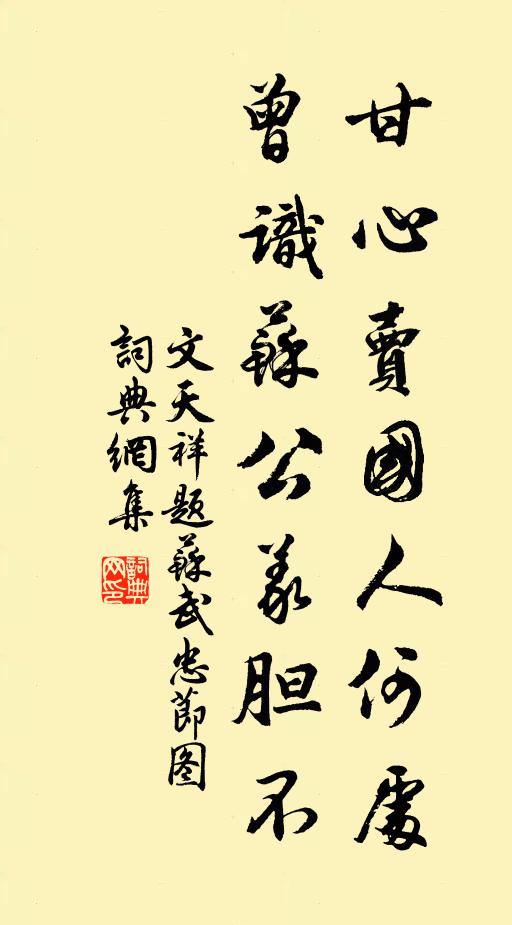 甘心賣國人何處
曾識蘇公義胆不
文天祥题蘇武忠節图
詞典網集
詞典网印